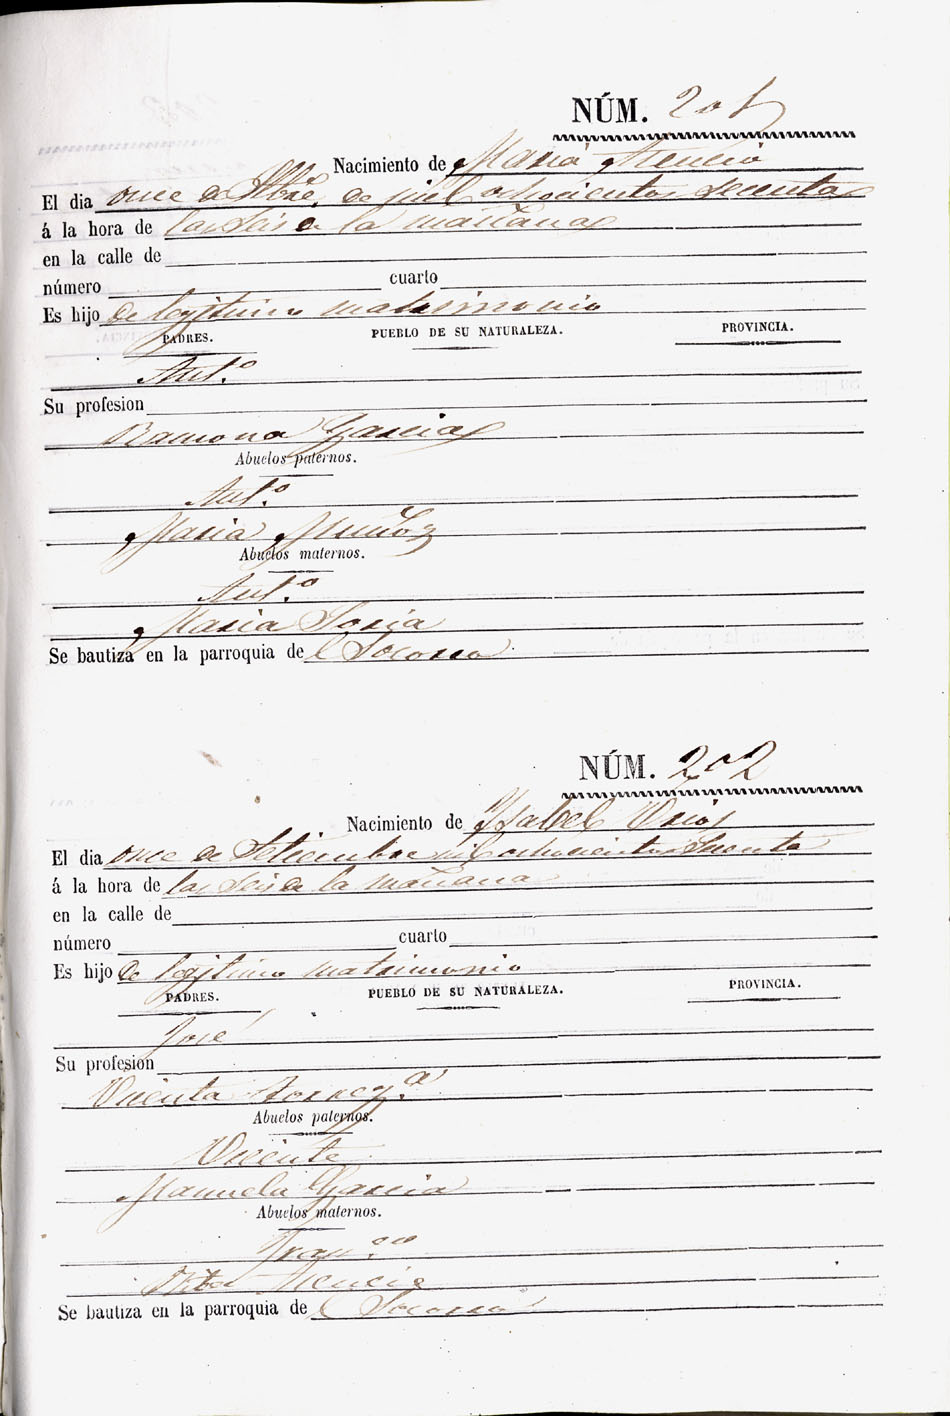 NÚM. 201
Nacimiento de Maria Atencio
El dia once de 7bre. de mil ochocientos sesenta
á la hora de las seis de la mañana
en la calle de
número cuarto
Es hijo de legitimo matrimonio
PADRES. PUEBLO DE SU NATURALEZA. PROVINCIA.
Ant.º
Su profesion
Ramona Garcia
Abuelos paternos.
Ant.º
Maria Muñoz
Abuelos maternos.
Ant.º
Maria Soria
Se bautiza en la parroquia de l Socorro
NÚM. 202
Nacimiento de Ysabel
El dia once de Setiembre mil ochocientos sesenta
á la hora de las seis de la mañana
en la calle de
número cuarto
Es hijo de legitimo matrimonio
PADRES. PUEBLO DE SU NATURALEZA. PROVINCIA.
José
Su profesion
Vicenta
Abuelos paternos.
Vicente
Manuela Garcia
Abuelos maternos.
Fran.co
Se bautiza en la parroquia de l Socorro